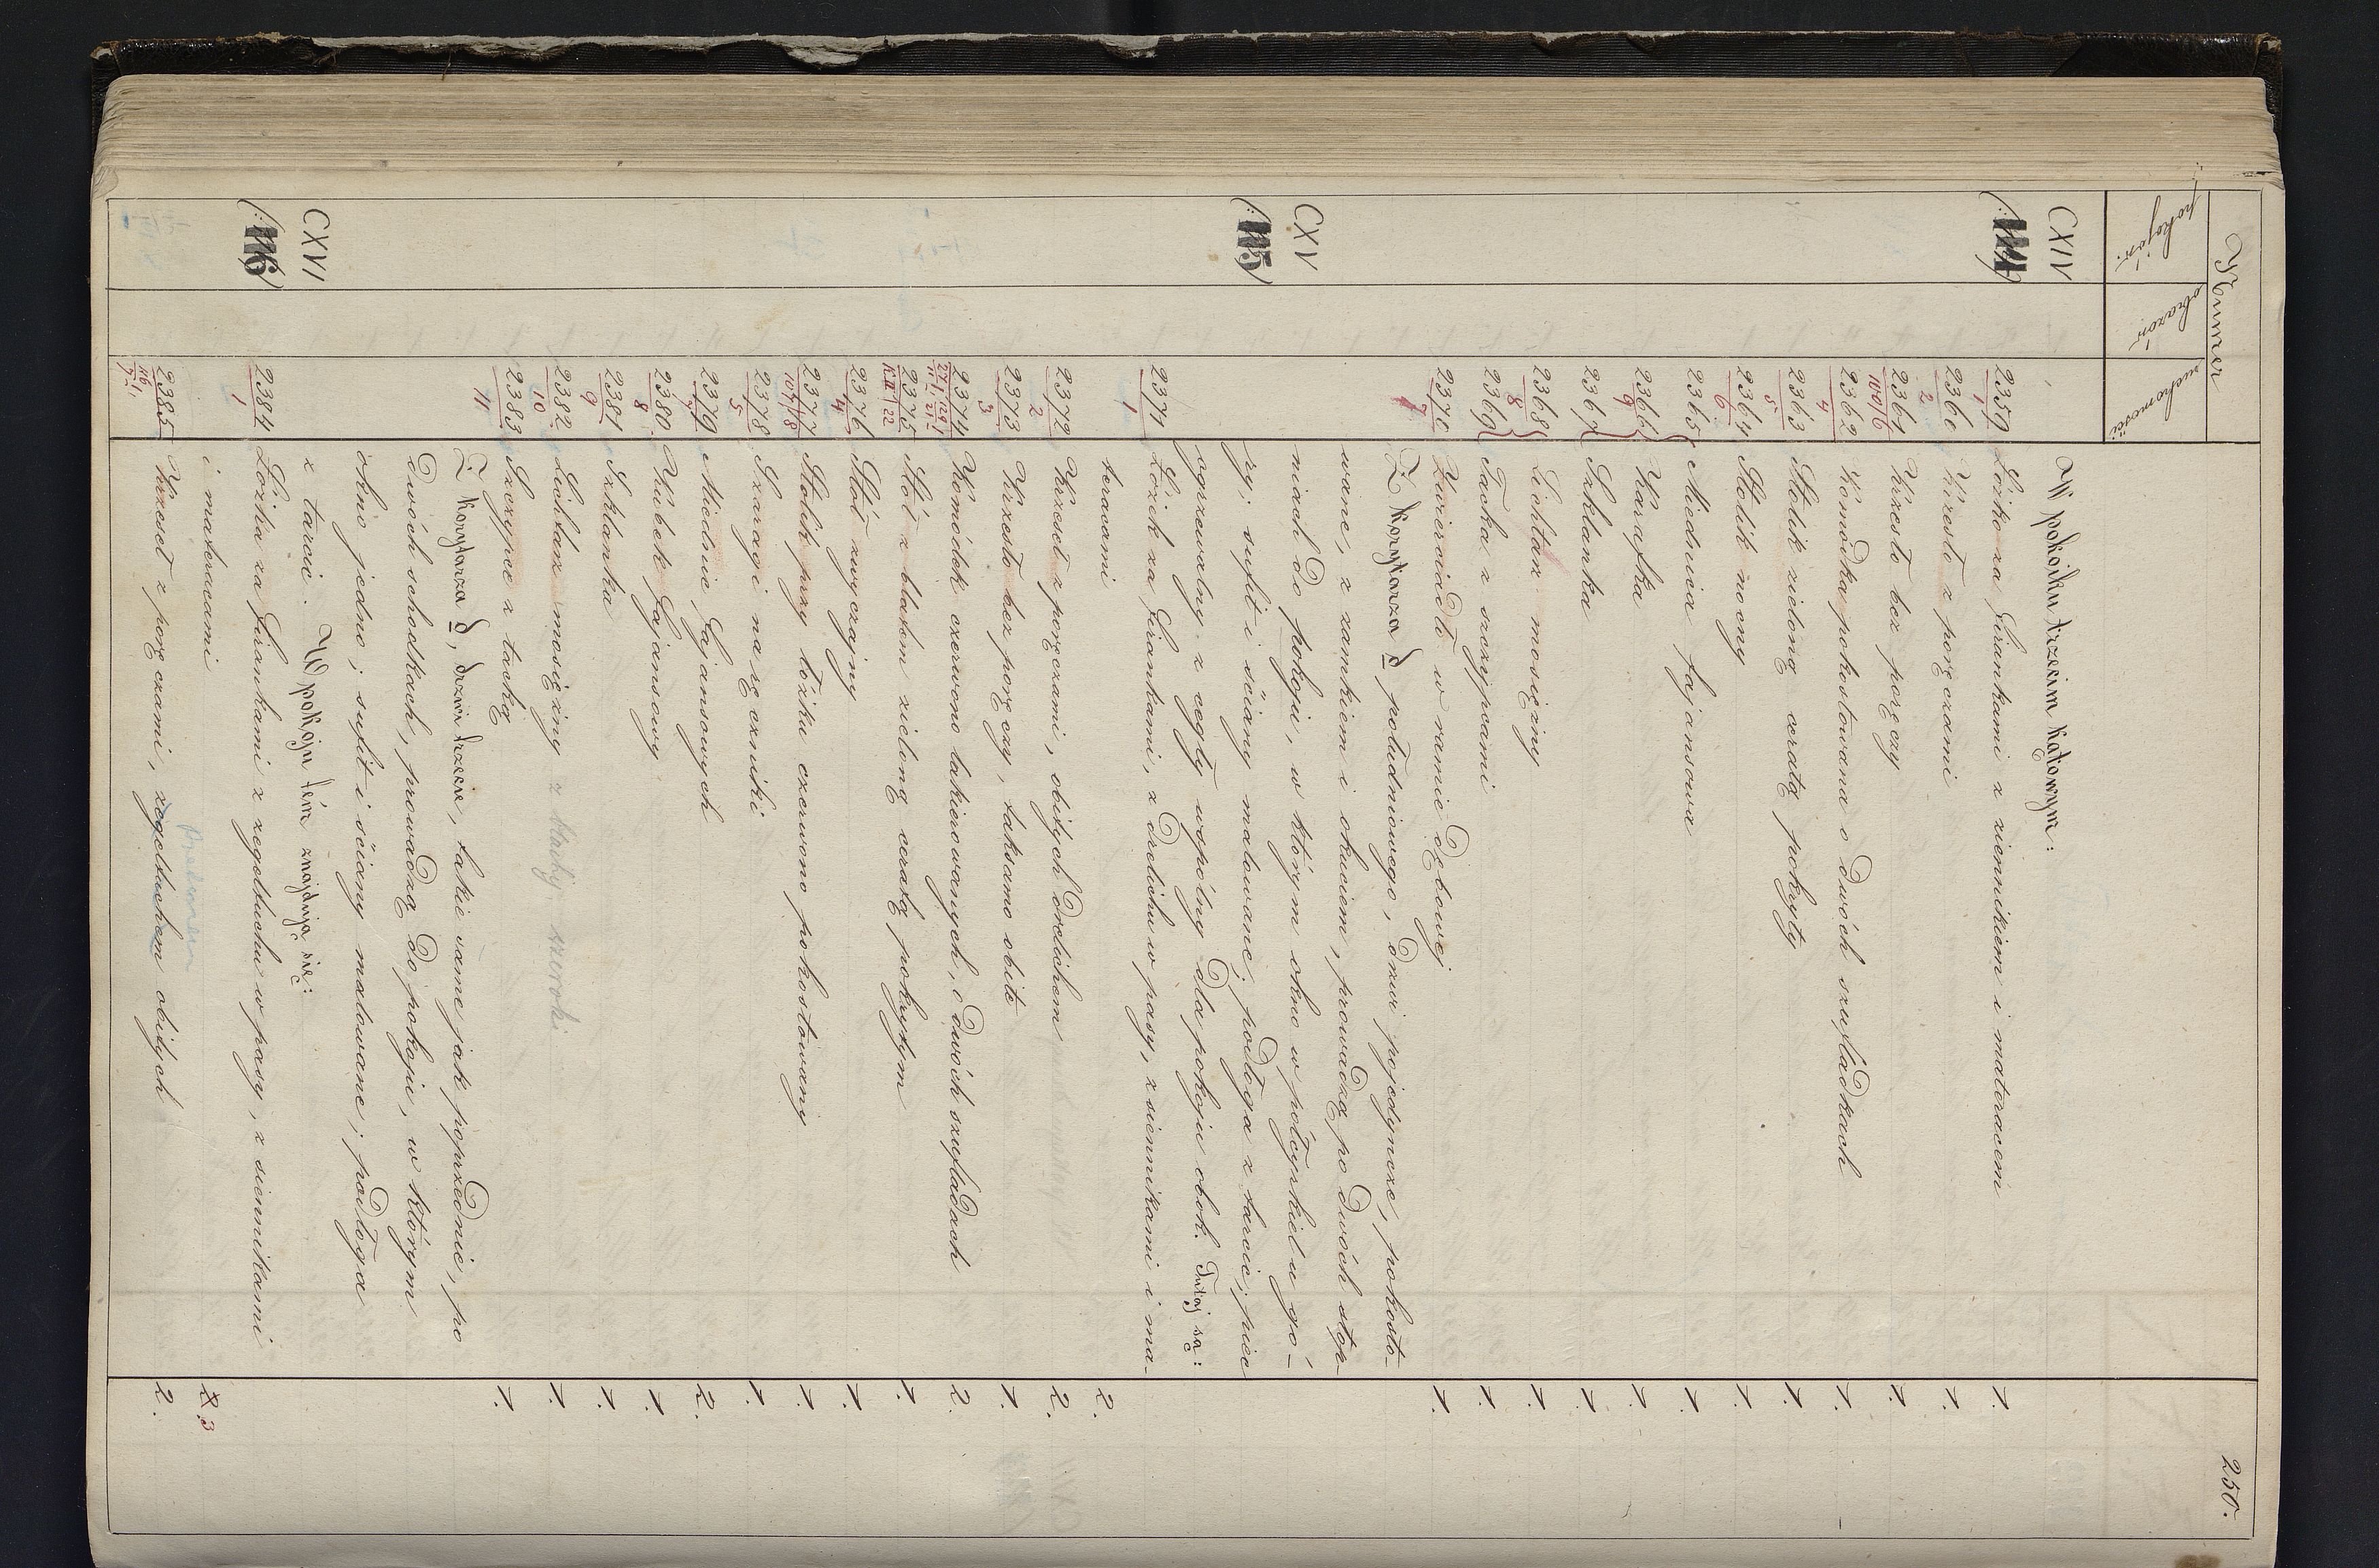 250.
Numer
pokojów. obrazów ruchomości
CXIV W pokoiku trzecim kątowym:
(: 114 :) 2359 1 Łóżko za firankami z siennikiem i materacem 1.
2360 2 Krzesło z poręczami 1.
2361 Krzesło bez poręczy 1.
2362 4 Komódka pokostowana o dwóch szufladkach 1.
2363 5 Stolik zieloną ceratą pokryty 1.
2364 6 Stolik nocny 1.
2365 Miednica fajansowa 1.
2366 9 Karafka 1.
2367 Szklanka 1.
2368 8 Lichtarz mosiężny 1.
2369 Tacka z szczypcami 1.
2370 7 Zwierciadło w ramie dębowej 1.
Z korytarza d południowego, drzwi pojedyncze, pokosto-
wane, z zamkiem i okuciem, prowadzą po dwóch stop-
CXV niach do pokoju, w którym okno w półcyrklu u gó-
(: 115 :) ry; sufit i ściany malowane; podłoga z tarcic; piec
ogrzewalny z cegły wspólny dla pokoju obok. Tutaj są:
2371 1 Łóżek za firankami, z drelichu w pasy, z siennikami i ma-
teracami 2.
2372 2 Krzeseł z poręczami, obitych drelichem 2.
2373 3 Krzesło bez poręczy, taksamo obite 1.
2374 Komódek czerwono lakierowanych, o dwóch szufladach 2.
2375 KII 22 Stół z blatem zieloną ceratą pokrytym 1.
2376 4 Stół zwyczajny 1.
2377 107/8 Stolik przy łóżku czerwono pokostowany 1.
2378 5 Szaragi na ręczniki 1.
2379 7 Miednic fajansowych 2.
2380 8 Kubek fajansowy 1.
2381 9 Szklanka 1.
2382 10 Lichtarz mosiężny 1.
2383 11 Szczypce z tacką 1.
Z korytarza d, drzwi trzecie, takie same jak poprzednie, po
dwóch schodkach, prowadzą do pokoju, w którym
okno jedno; sufit i ściany malowane; podłoga
CXVI z tarcic. W pokoju tém znajdują się:
(: 116 :) 2384 1 Łóżka za firankami z zegeltuchu w pasy, z siennikami
i materacami 2. 3
2385 Krzeseł z poręczami, zegeltuchem obitych 2.